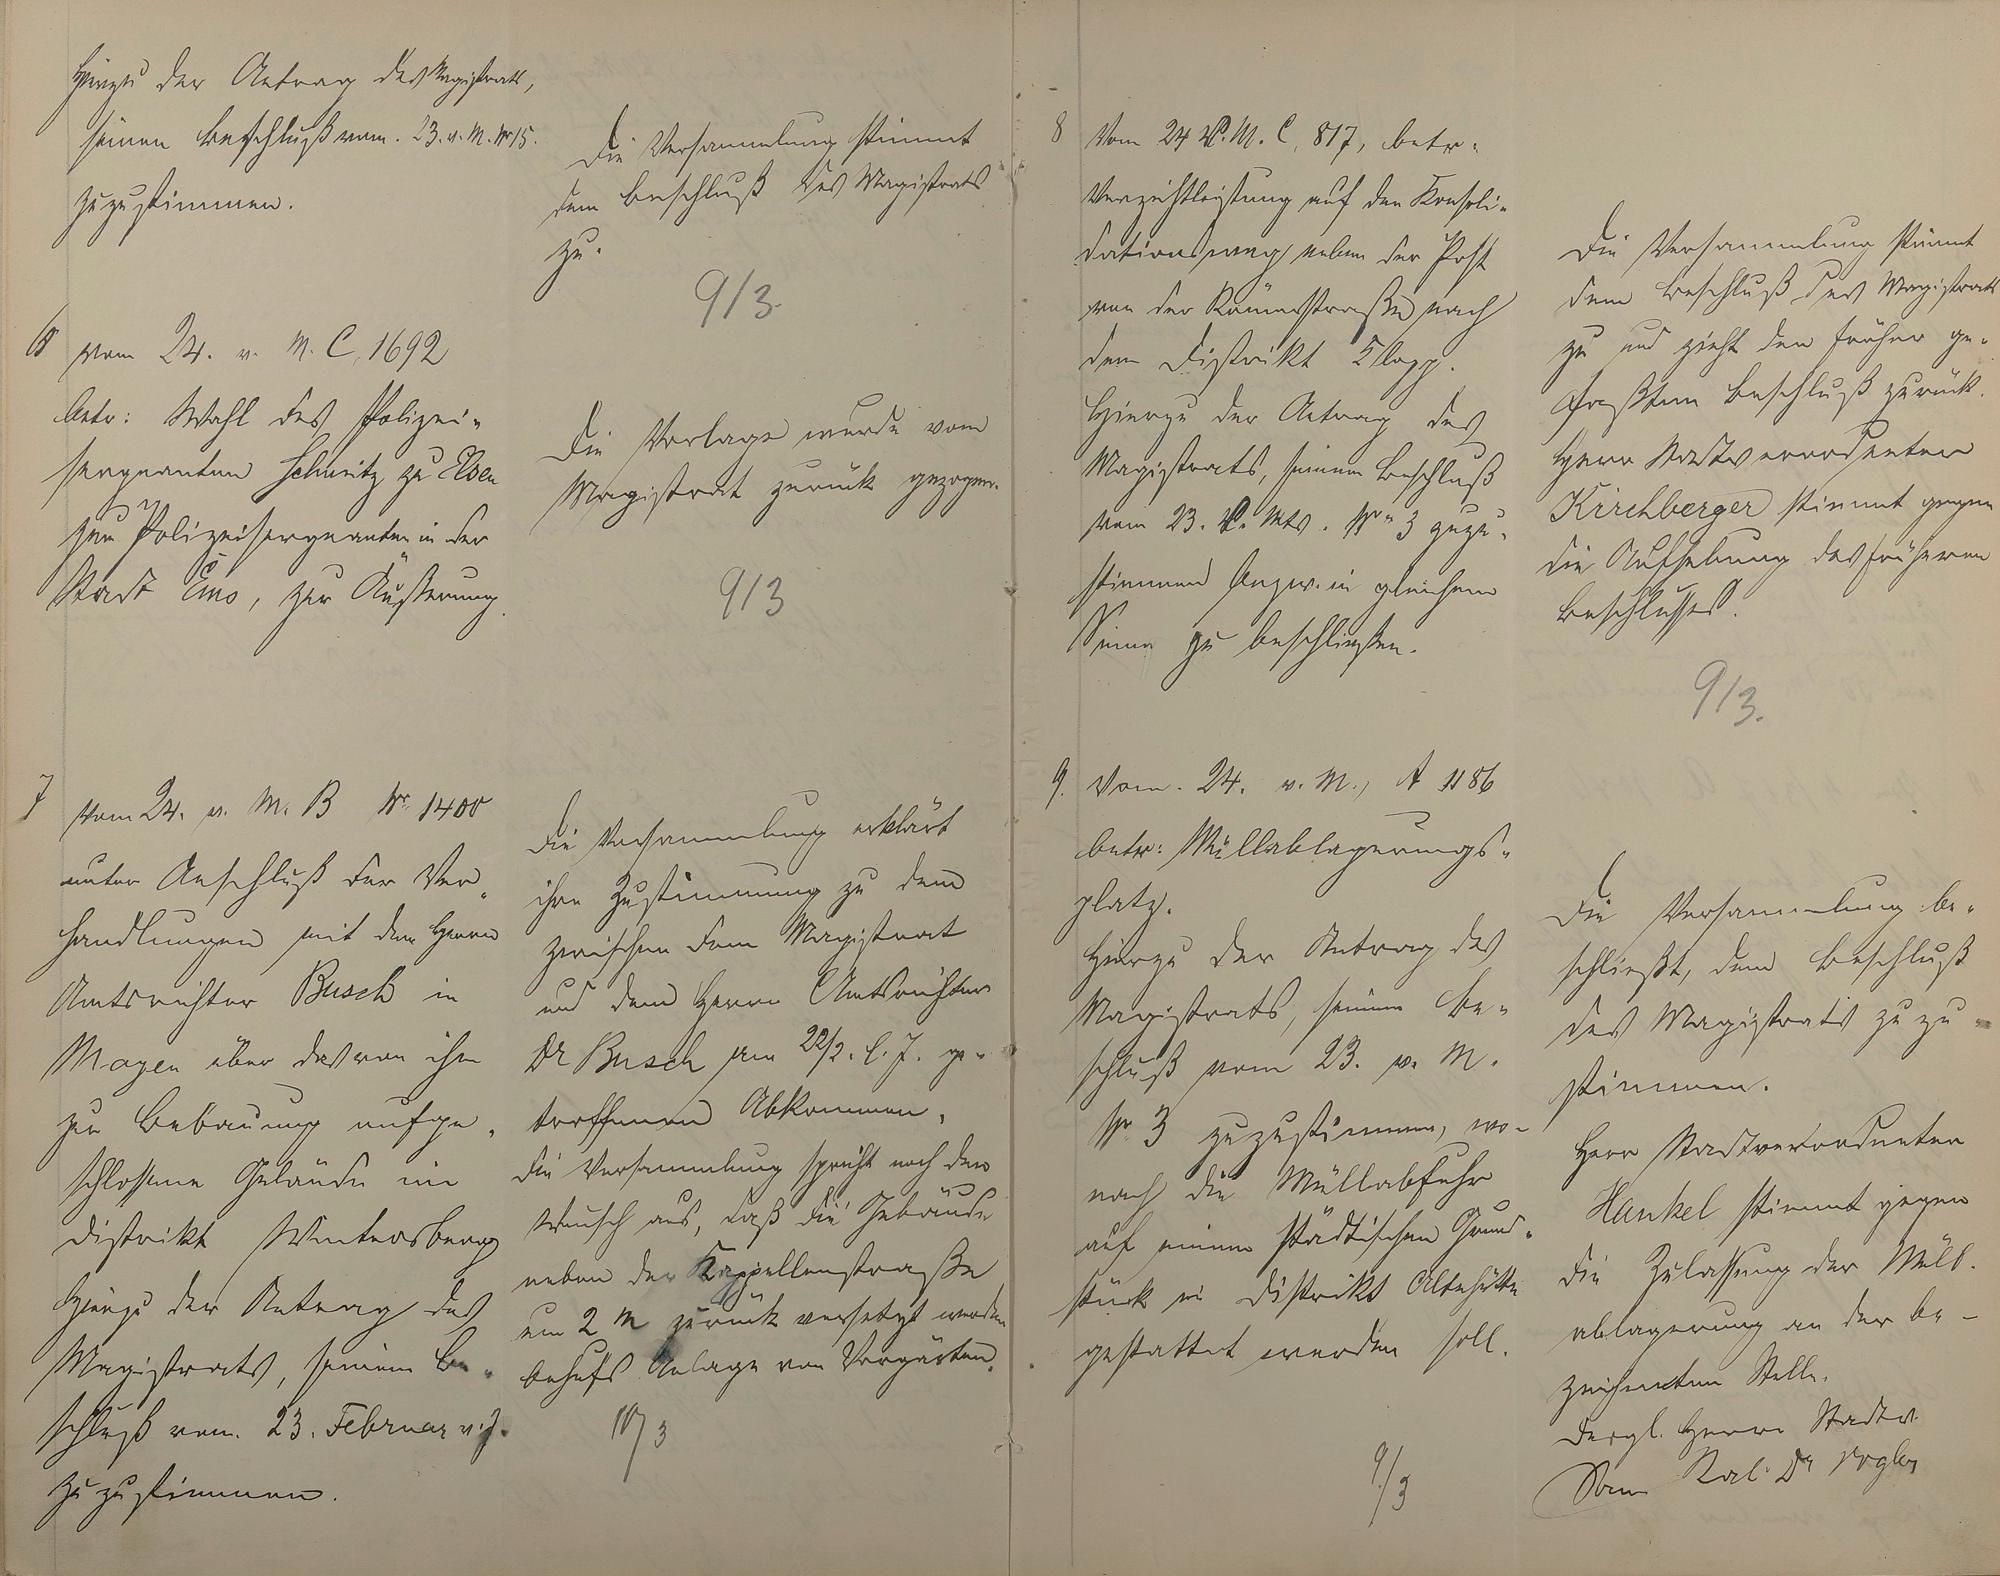 Hierzu der Antrag des Magistrats,
seinem Beschluß vom 23. v. M. Nr 15.
zuzustimmen.
Die Versammlung stimmt
dem Beschluß des Magistrats
zu.
9/3.
6 vom 24. v. M. C. 1692
betr: Wahl des Polizei-
sergeanten Schmitz zu Elsen
zum Polizeisergeanten in der
Stadt Ems, zur Äußerung.
Die Vorlage wurde vom
Magistrat zurück gezogen.
9/3
7 vom 24. v. M. B Nr. 1400
unter Anschluß der Ver-
handlungen mit dem Herrn
Amtsrichter Busch in
Mayen über das von ihm
zur Bebauung aufge-
schlossene Gelände im
Distrikt Wintersberg
Hierzu der Antrag des
Magistrats, seinem Be-
schluß vom 23. Februar v. J.
zuzustimmen.
Die Versammlung erklärt
ihre Zustimmung zu dem
zwischen dem Magistrat
und dem Herrn Amtsrichter
Dr Busch am 22/2. l. J. ge-
troffenen Abkommen.
Die Versammlung spricht noch den
Wunsch aus, daß die Gebäude
neben der Kappellenstraße
um 2 m zurück versetzt werden
behufs Anlage von Vorgärten.
10/3
8 Vom 24 v. M. C. 817, betr.
Verzichtleistung auf den Konsoli-
dationsweg neben der Post
von der Römerstraße nach
dem Distrikt Klopp.
Hierzu der Antrag des
Magistrats, seinem Beschluß
vom 23. v. Mts. Nro 3 zuzu-
stimmen bezw. in gleichem
Sinne zu beschließen.
Die Versammlung stimmt
dem Beschluß des Magistrats
zu und zieht den früher ge-
faßten Beschluß zurück.
Herr Stadtverordneter
Kirchberger stimmt gegen
die Aufhebung des früheren
Beschlusses.
9/3.
9. Vom 24. v. M., A 1186
betr: Müllablagerungs-
platz.
Hierzu der Antrag des
Magistrats, seinem Be-
schluß vom 23. v. M.
Nr. 3 zuzustimmen, wo-
nach die Müllabfuhr
auf einem städtischen Grund-
stück im Distrikt Altehütte
gestattet werden soll.
9/3
Die Versammlung be-
schließt, dem Beschluß
des Magistrats zu zu-
stimmen.
Herr Stadtverordneter
Hankel stimmt gegen
die Zulassung der Müll-
ablagerung an der be-
zeichneten Stelle.
Desgl. Herr Stadtv.
San. Rat Dr Vogler